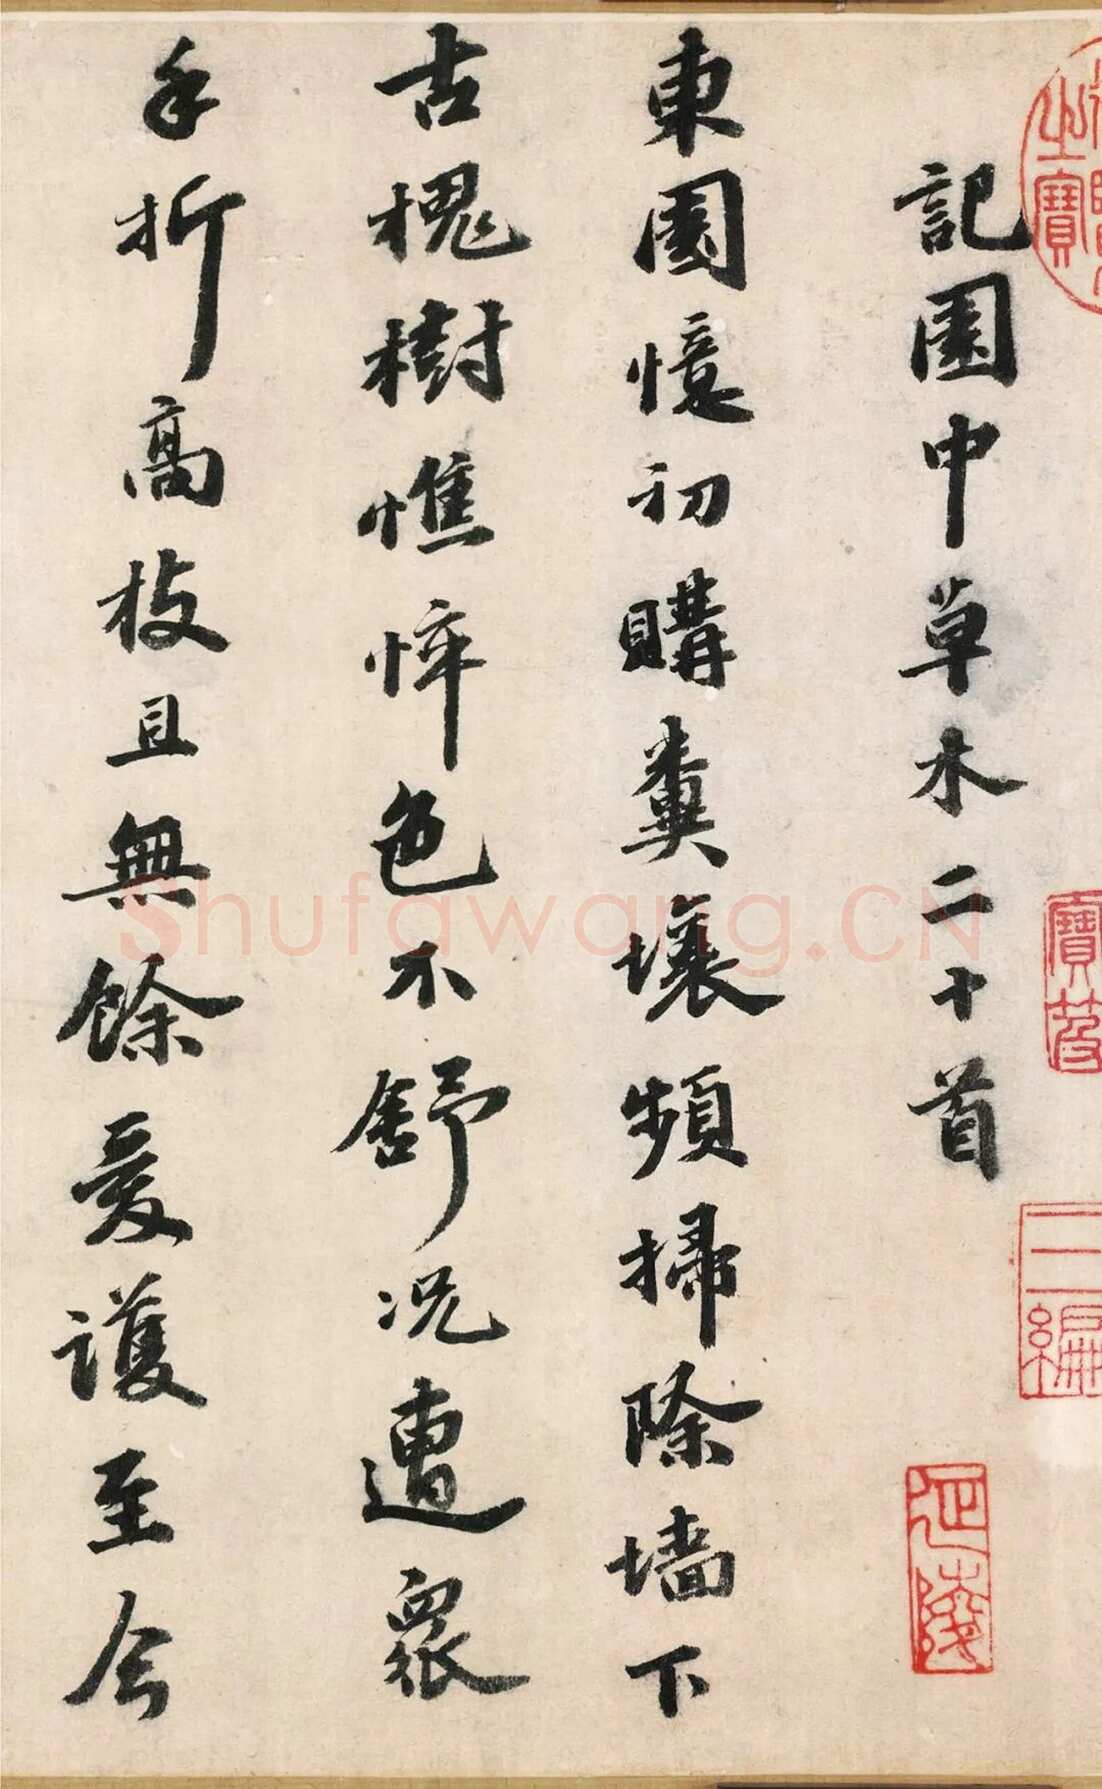 記園中草木二十首
東園憶初購糞壤頻掃除墻下
古槐樹憔悴色不舒况遭衆
手折高枝且無餘爰護至今
之寶
寶笈
三編
延陵
Shufawang.CN